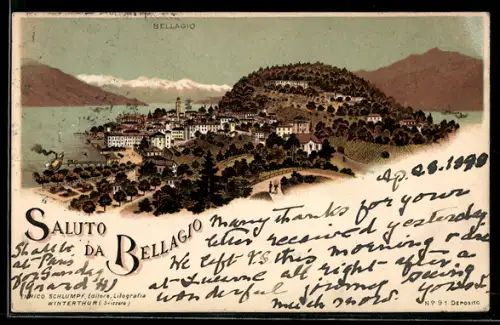 BELLAGIO
Ap. 28. 1898
SALUTO
DA BELLAGIO
Many thanks for your
letter received yesterday
We left VS this morning & are
at Lucerne all right after a
wonderful journey seeing
much snow. yours
Shall be
at Paris
for Sunday
(Grand H)
ENRICO SCHLUMPF, Editore, Litografia
WINTERTHUR (Svizzera)
No 91 DEPOSITO